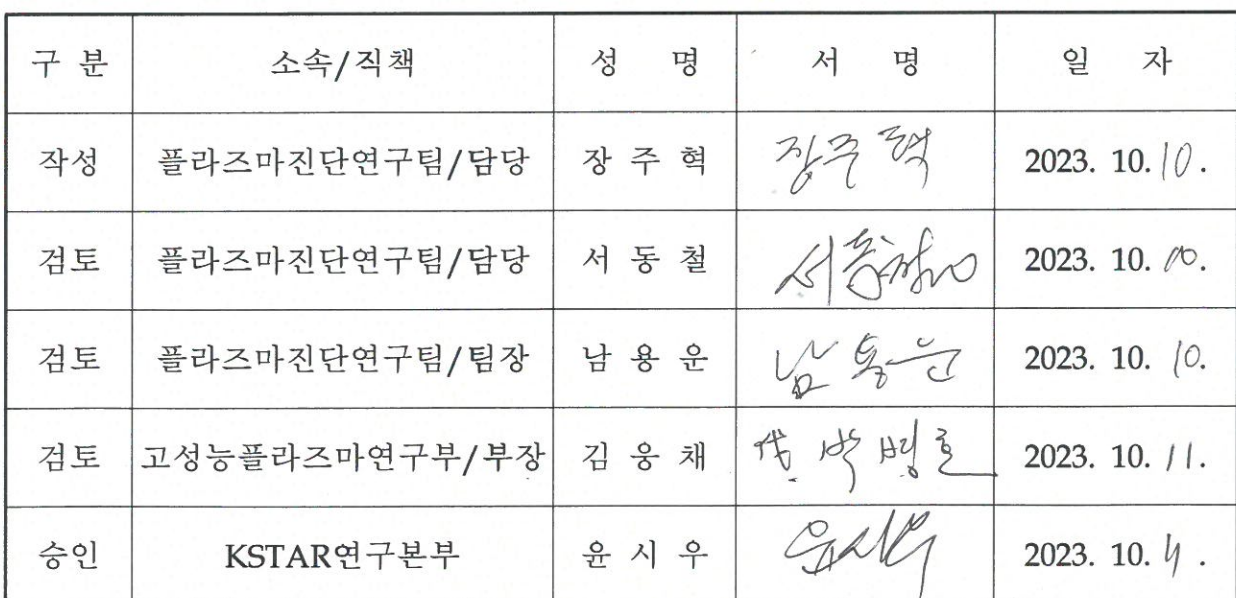 구 분 소속/직책 성 명 서 명 일 자
작성 플라즈마진단연구팀/담당 장 주 혁 장주혁 2023. 10. 10.
검토 플라즈마진단연구팀/담당 서 동 철 서동철 2023. 10. 10.
검토 플라즈마진단연구팀/팀장 남 용 운 남용운 2023. 10. 10.
검토 고성능플라즈마연구부/부장 김 웅 채 代 박병호 2023. 10. 11.
승인 KSTAR연구본부 윤 시 우 윤시우 2023. 10. 11.